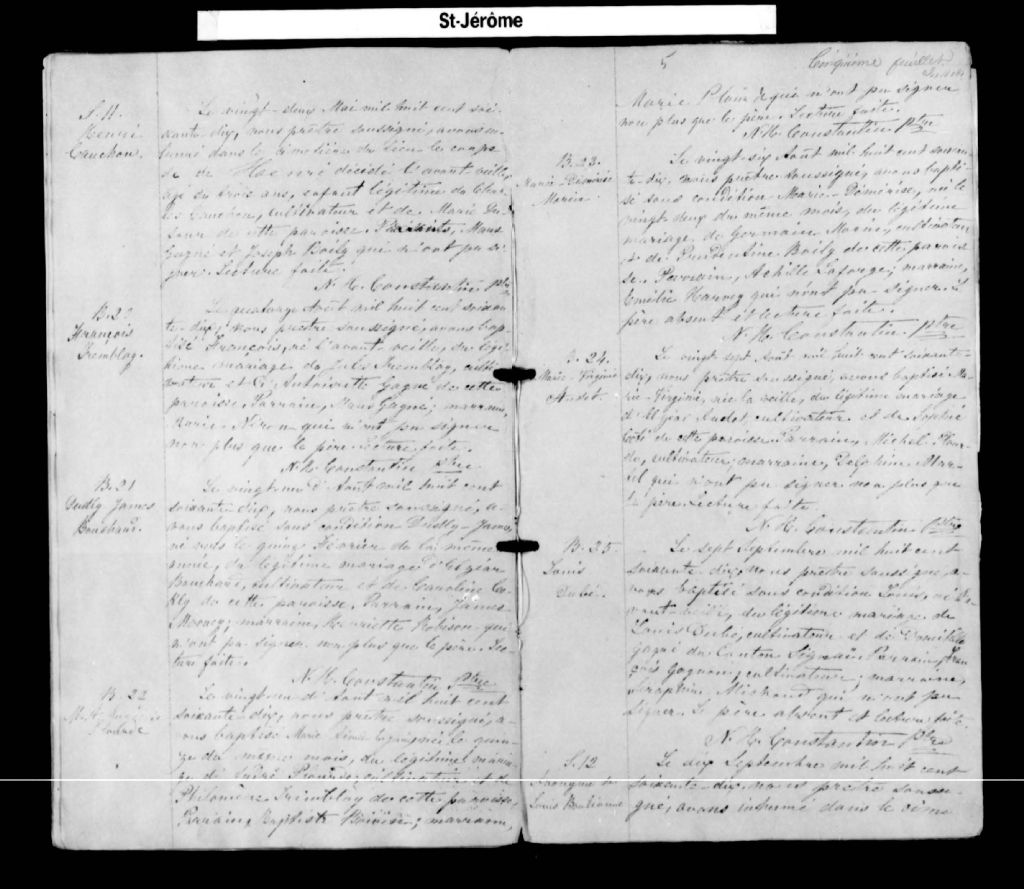 St-Jérôme
S. 11.
Henri
Cauchon.
Le vingt-deux Mai mil huit cent soi-
xante-dix, nous prêtre soussigné, avons in-
humé dans le cimetière du lieu le corps
de Henri décédé l'avant veille,
agé de trois ans, enfant légitime de Char-
les Cauchon, cultivateur et de Marie
de cette paroisse. Présents,
Gagné et Joseph Boily qui n'ont pu si-
gner. Lecture faite.
N. H. Constantin Ptre
B. 20
François
Tremblay.
Le quatorze Août mil huit cent soixan-
te-dix, nous prêtre soussigné, avons bap-
tisé François, né l'avant-veille, du légi-
time mariage de Jules Tremblay, culti-
vateur et de Antoinette Gagné de cette
paroisse. Parrain, Gagné; marraine,
Marie qui n'ont pu signer
non plus que le père. Lecture faite.
N. H. Constantin Ptre
B. 21
Dudly James
Bouchard.
Le vingt-un d'Août mil huit cent
soixante-dix, nous prêtre soussigné, a-
vons baptisé sous condition Dudly-James,
né vers le quinze Février de la même
année, du légitime mariage d'
Bouchard, cultivateur et de Caroline
de cette paroisse. Parrain, James
Mooney; marraine, Henriette Robison qui
n'ont pu signer non plus que le père. Lec-
ture faite.
N. H. Constantin Ptre
B. 22
Le vingt-un d'Août mil huit cent
soixante-dix, nous prêtre soussigné, a-
vons baptisé Marie née le quin-
ze du même mois, du légitime maria-
ge de Plourde, cultivateur et de
Philomène Tremblay de cette paroisse.
Parrain, Baptiste; marraine,
5
Cinquième feuillet
Marie Plourde qui n'ont pu signer
non plus que le père. Lecture faite.
N. H. Constantin Ptre
B. 23.
Marie-Démérise
Morin
Le vingt-six Août mil huit cent soixan-
te-dix, nous prêtre soussigné, avons bapti-
sé sous condition Marie-Démérise, née le
vingt deux du même mois, du légitime
mariage de Germain Morin, cultivateur
& de Prudentine Boily de cette parois-
se. Parrain, Achille Laforge; marraine,
Emélie Harvey qui n'ont pu signer. Le
père absent et lecture faite.
N. H. Constantin Ptre
B. 24.
Marie-Virginie
Audet.
Le vingt sept Août mil huit cent soixante-
dix, nous prêtre soussigné, avons baptisé Ma-
rie-Virginie, née la veille, du légitime mariage
d' Audet cultivateur et de
Côté de cette paroisse. Parrain, Michel Plour-
de, cultivateur; marraine, Delphine Mar-
tel qui n'ont pu signer non plus que
le père. Lecture faite.
N. H. Constantin Ptre
B. 25.
Louis
Dubé.
Le sept Septembre mil huit cent
soixante-dix, nous prêtre soussigné, a-
vons baptisé sous condition Louis, né l'a-
vant-veille, du légitime mariage de
Louis Dubé, cultivateur et de Domitilde
Gagné du Canton Signaï. Parrain, Fran-
çois Gagnon, cultivateur; marraine,
Séraphine Michaud qui n'ont pu
signer. Le père absent et lecture faite.
N. H. Constantin Ptre
S. 12
Anonyme de
Louis
Le dix Septembre mil huit cent
soixante-dix, nous prêtre soussi-
gné, avons inhumé dans le cime